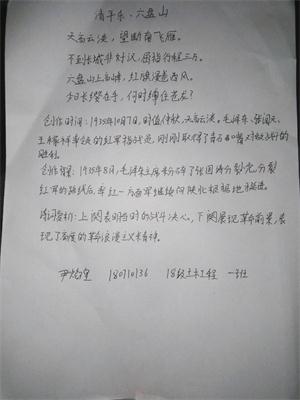 清平乐·六盘山
天高云淡,望断南飞雁。
不到长城非好汉,屈指行程二万。
六盘山上高峰,红旗漫卷西风。
今日长缨在手,何时缚住苍龙?
创作时间:1935年10月7日,时值仲秋,天高云淡。毛泽东、张闻天、
王稼祥率领的红军指战员,刚刚取得了青石嘴对敌战的
胜利。
创作背景:1935年8月,毛泽东主席粉碎了张国焘分裂党、分裂
红军的路线后,率红一方面军继续向陕北根据地挺进。
诗词赏析:上阕表明当时的战斗决心,下阕展现革命前景,表
现了高度的革命浪漫主义精神。
18级土木工程 一班